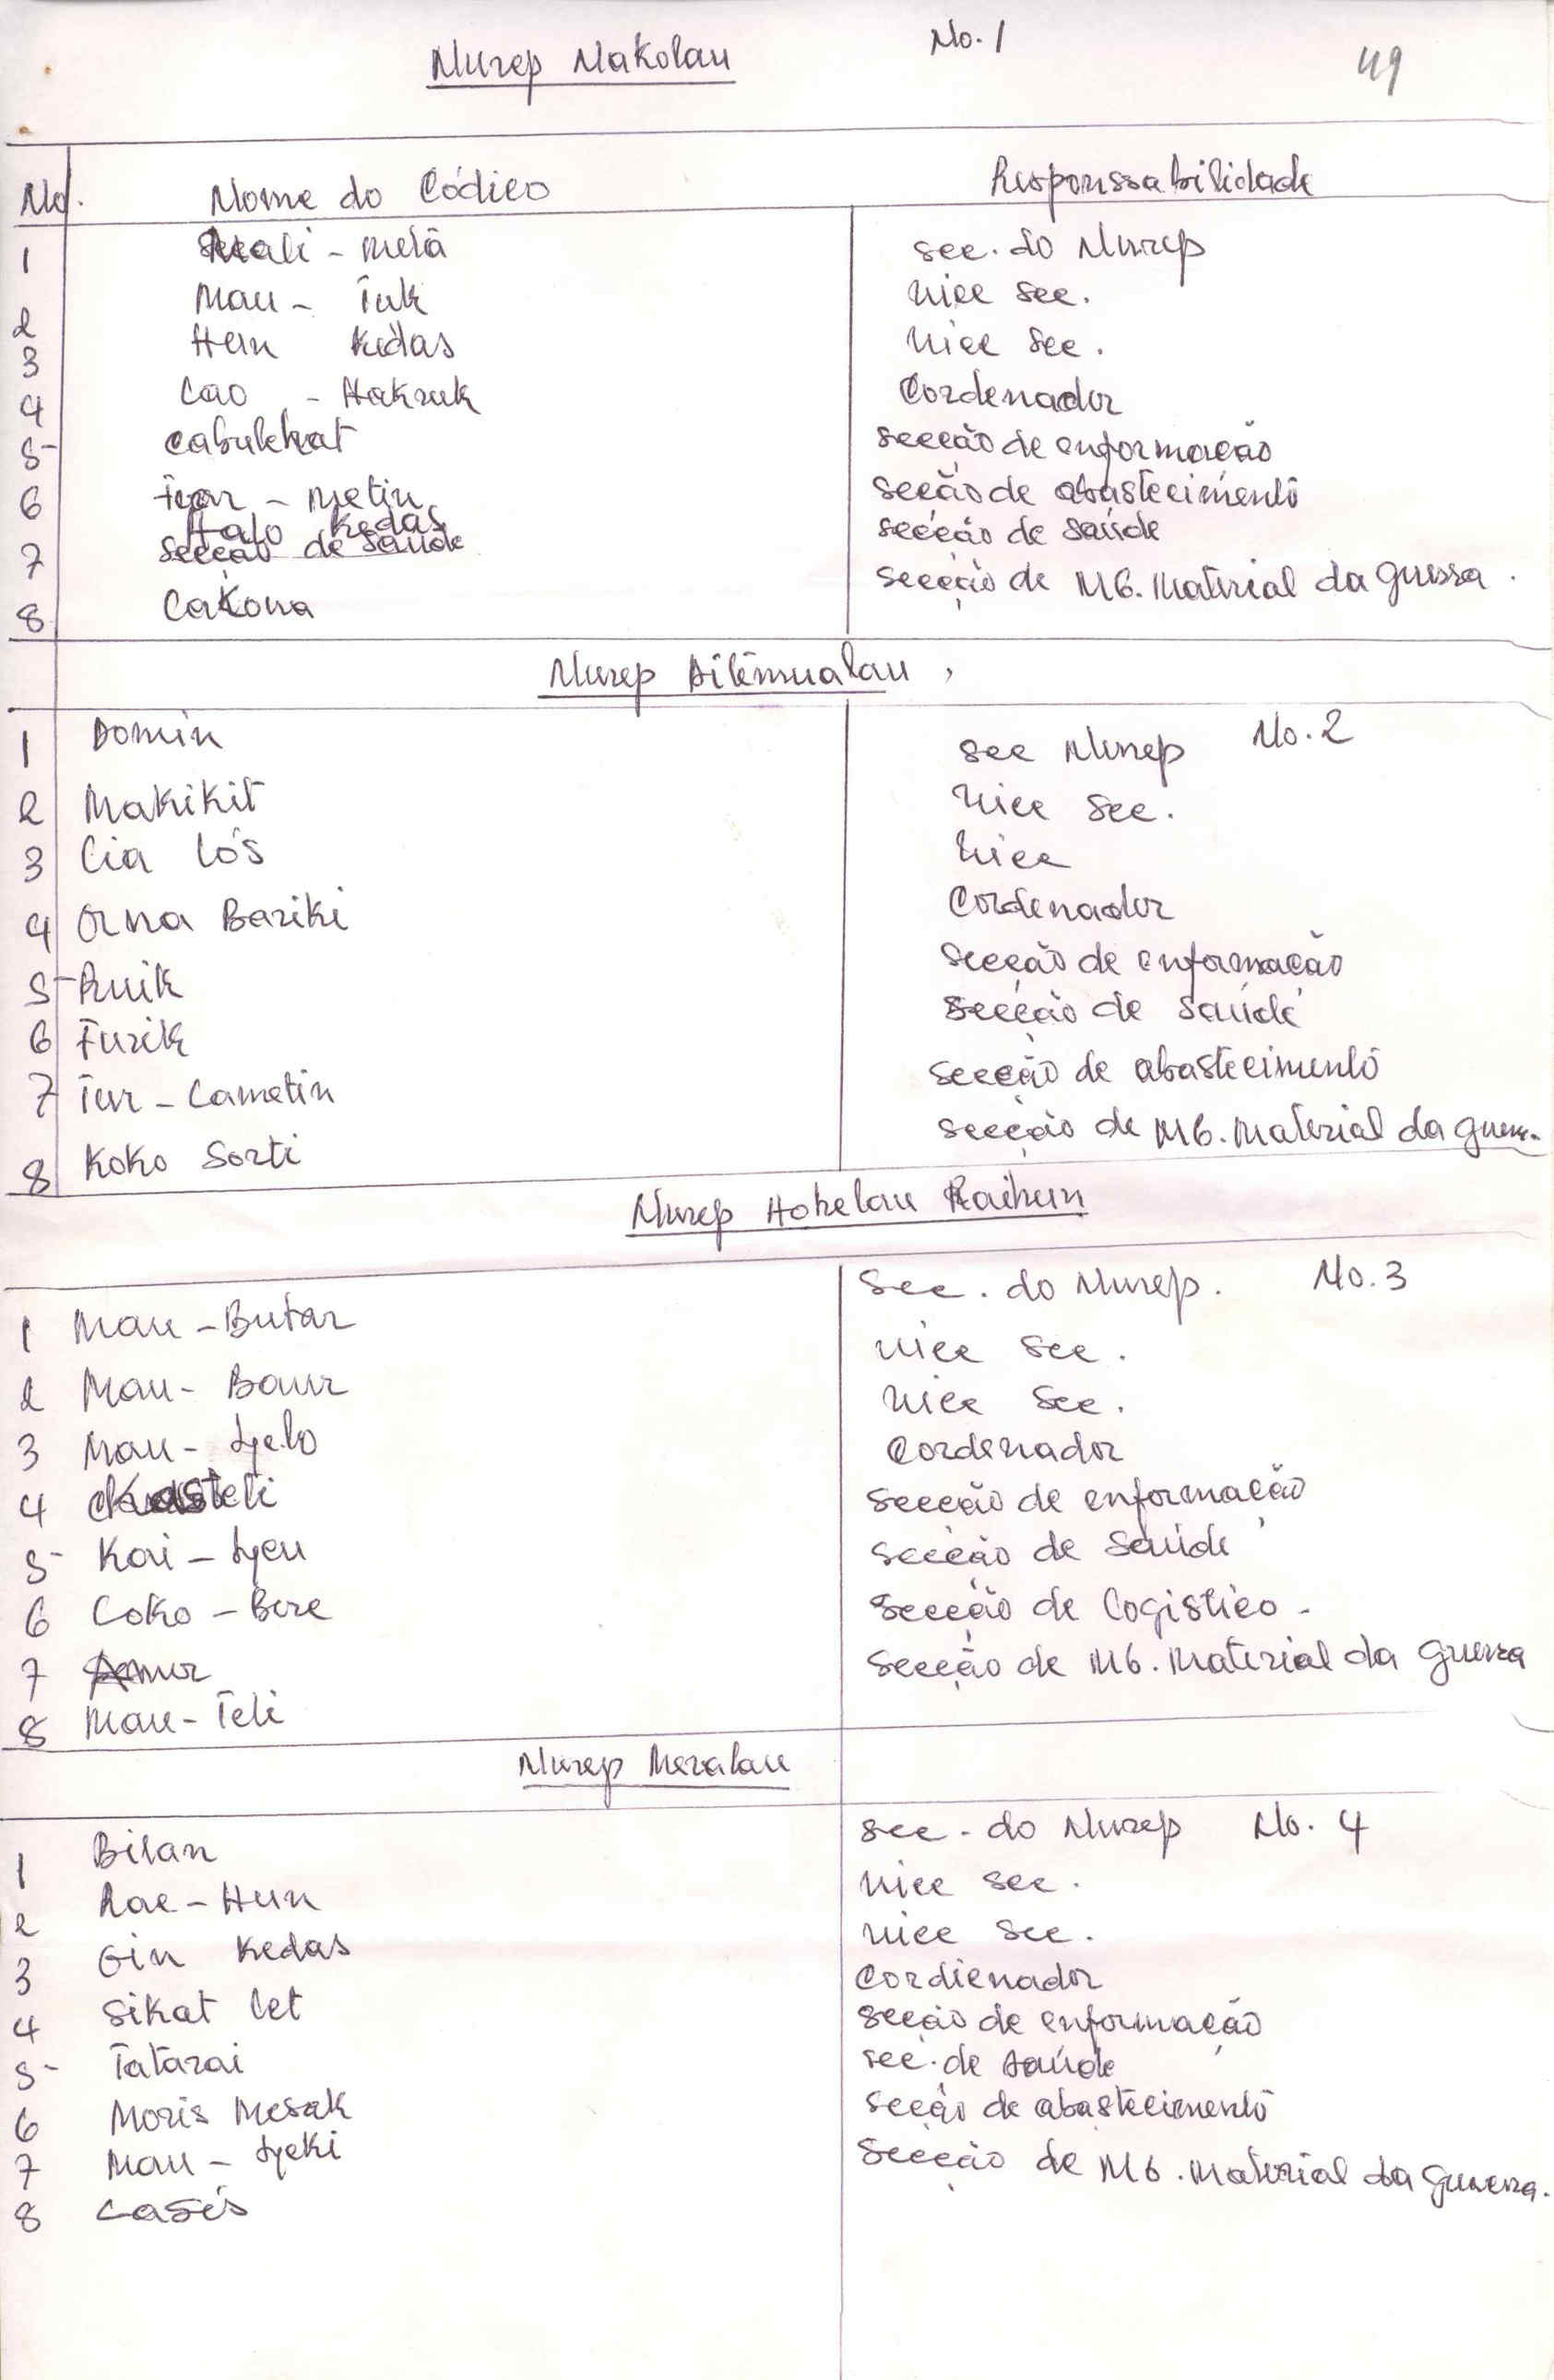 Nurep Nakolau No. 1
49
No. Nome do Códico Responssabilidade
1 Mali - Metã sec. do Nurep
2 Mau - Tuk vice sec.
3 Hun Kedas vice sec.
4 Lao - Hakruk Cordenador
5 Cabulehat secção de enformação
6 Tur - Metin secção de abastecimento
Halo Kedas
7 secção de saúde secção de saúde
8 Lakona secção de MG. Material da guerra.
Nurep Ailêmualau,
1 Domin sec Nurep No. 2
2 Makikit vice sec.
3 Cia Lós vice
4 Orna Bariki Cordenador
5 Ruik secção de enformação
6 Furik secção de saúde
7 Tur - Lametin secção de abastecimento
8 Koko Sorti secção de MG. Material da guerr.
Nurep Hohelau Raihun
Sec. do Nurep. No. 3
1 Mau - Butar vice sec.
2 Mau - Baur vice sec.
3 Mau - Lyelo Cordenador
4 teti secção de enformação
5 Kai - Lyeu secção de saúde
6 Loko - Bere secção de Logistico -
7 Amur secção de MG. Material da guerra
8 Mau - Teli
Nurep Meralau
1 Bilan sec. do Nurep No. 4
2 Rae - Hun vice sec.
3 Gin Kedas vice sec.
4 Sikat Let Cordienador
5 Tatarai secção de enformação
6 Moris Mesak sec. de saúde
7 Mau - Lyeki secção de abastecimento
8 Lasés secção de MG. Material da guerra.